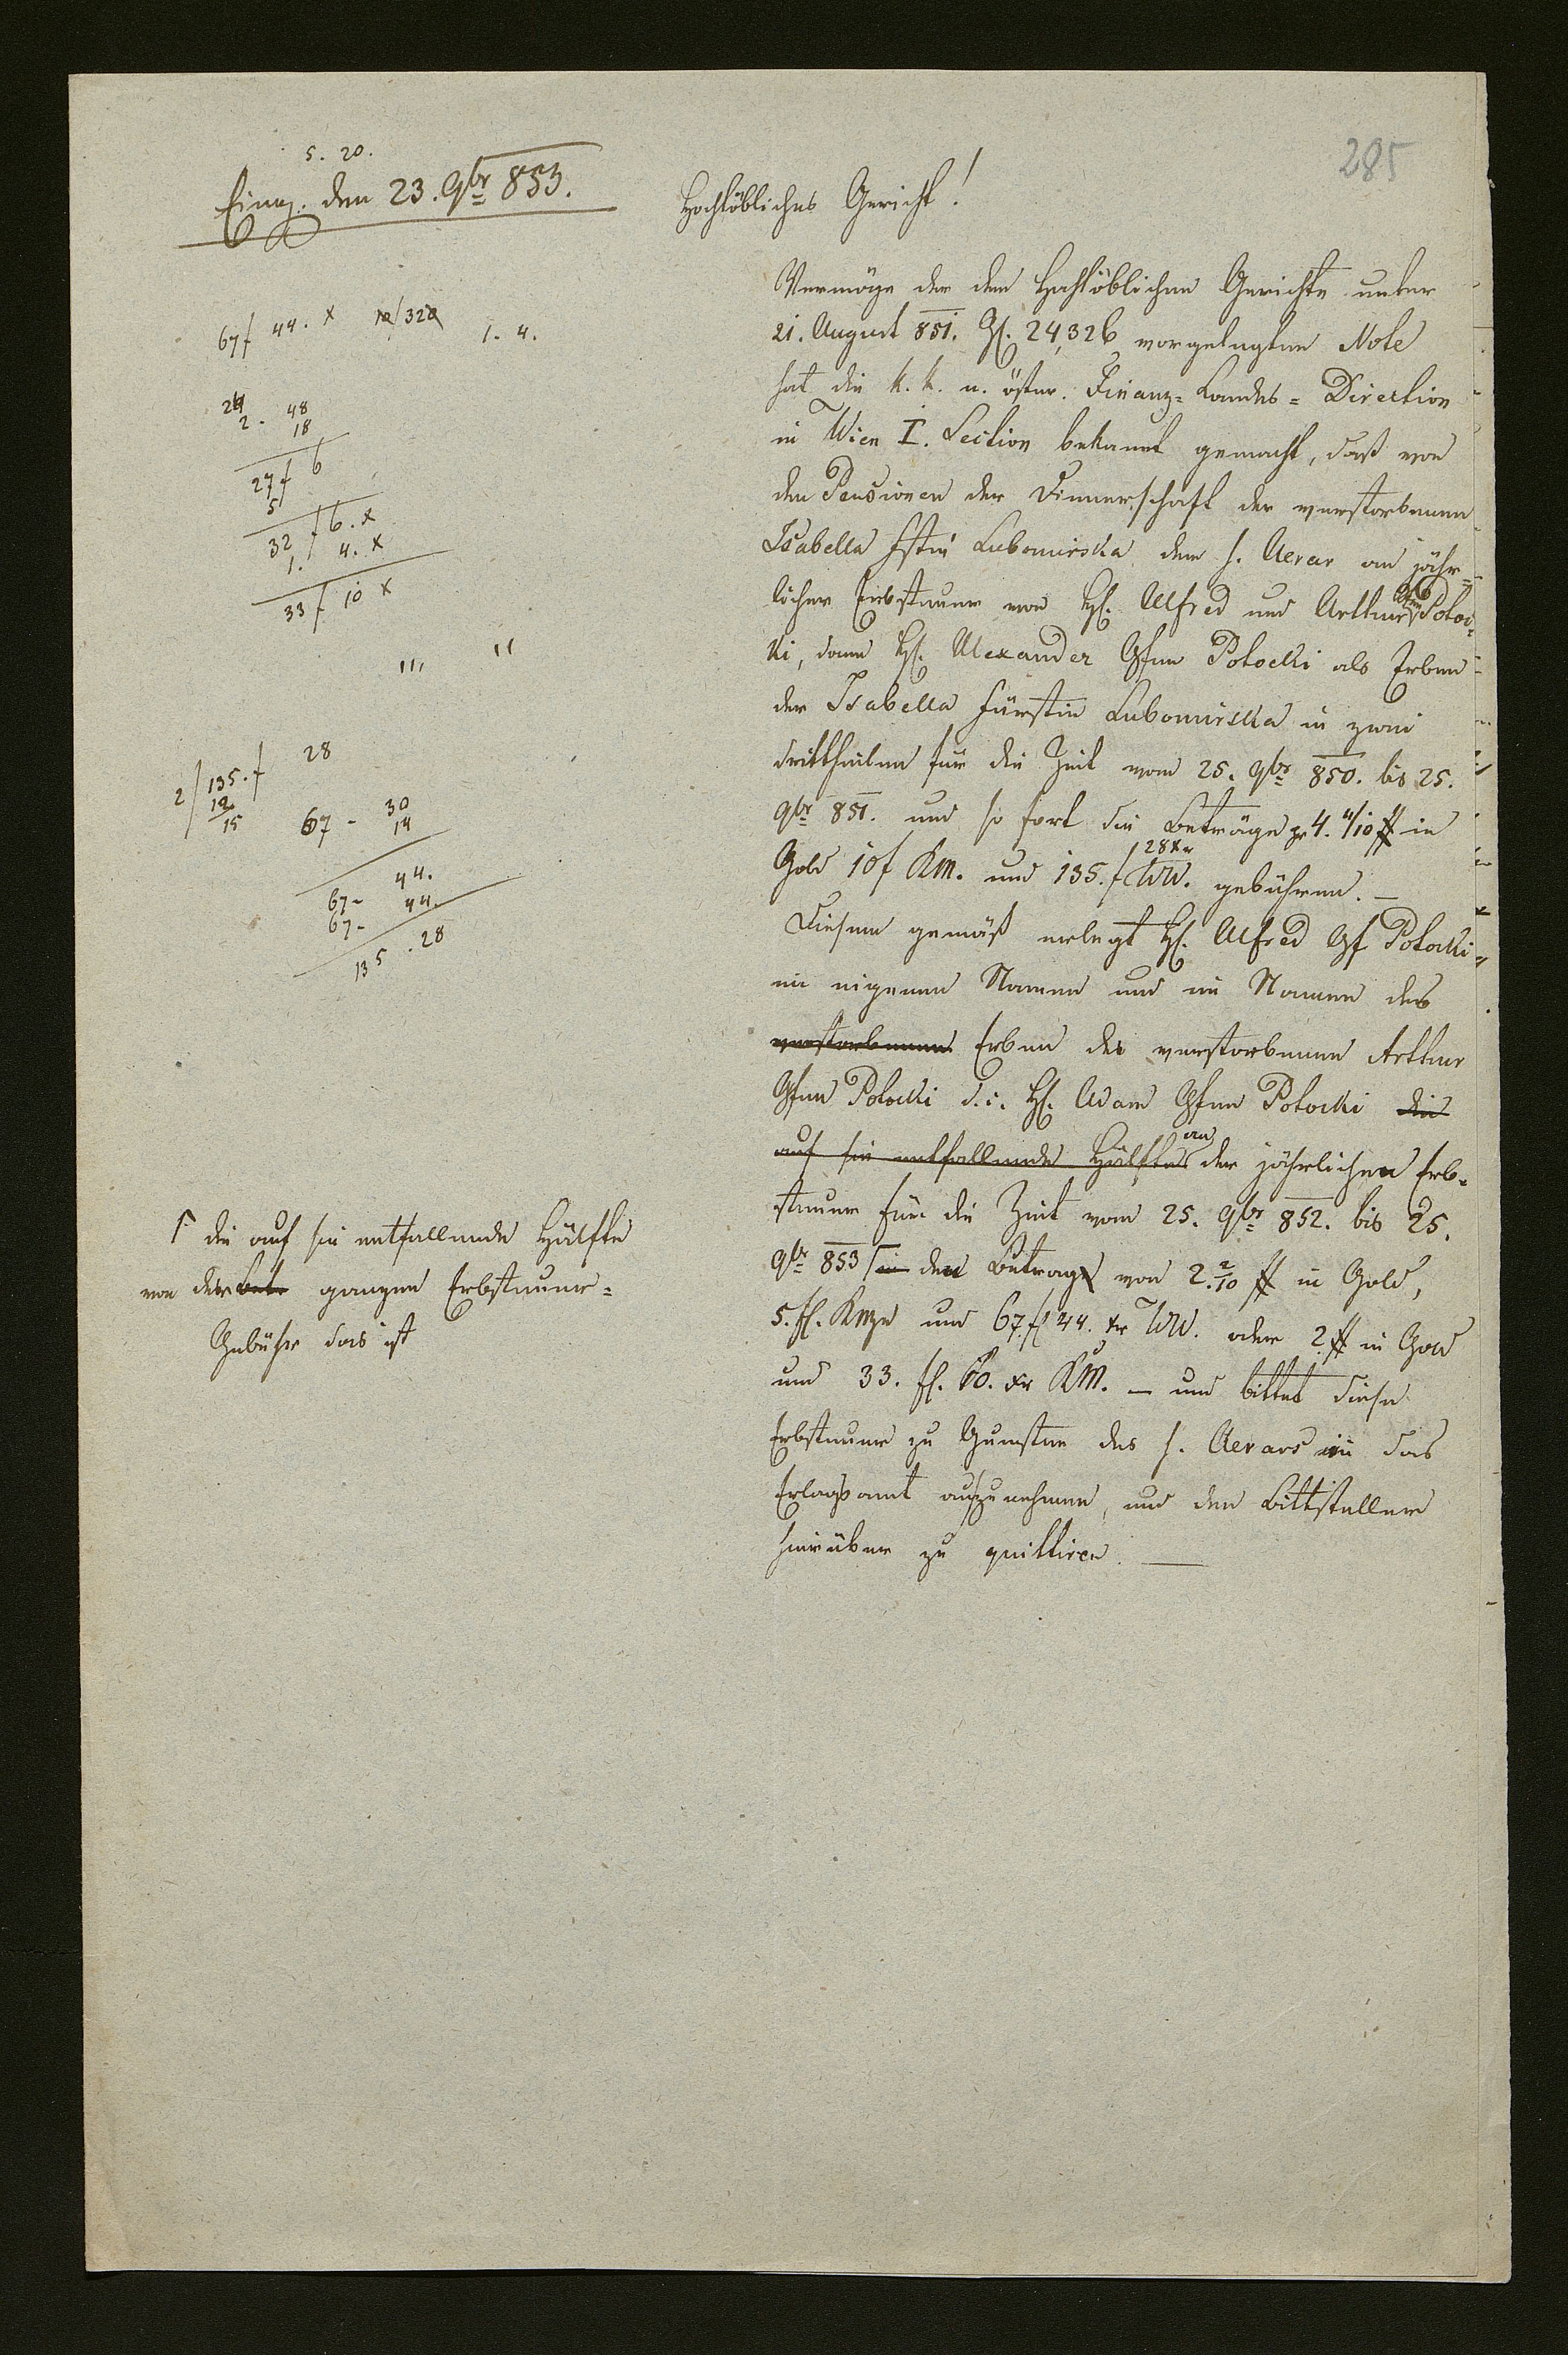 285
5. 20.
Eing. den 23. 9br 853.
67 f 44. x 10/320 1. 4.
24 48
2. 18
27 f 6
5
32 f 6. x
1. 4. x
33 f 10 x
28
2/135. f
12
15
67 - 30
14
67 - 44.
67 - 44.
135. 28
Γ die auf sie entfallende Hälfte
von der ganzen Erbsteuer=
Gebühr das ist
Hochlöbliches Gericht!
Vermöge der dem Hochlöblichen Gerichte unter
21. August 851. Zl. 24,326 vorgelegten Note
hat die k. k. n. öster. Finanz=Landes=Direction
in Wien I. Section bekannt gemacht, daß von
den Pensionen der Dienerschaft der verstorbenen
Isabella Fstin Lubomirska dem h. Aerar an jähr=
licher Erbsteuer von H. Alfred und Arthur Gfen Potoc=
ki, dann H. Alexander Gfen Potocki als Erben
der Isabella Fürstin Lubomirska in zwei
drittheilen für die Zeit vom 25. 9br 850. bis 25.
9br 851. und so fort die Beträge pr 4. 4/10 ## in
Gold 10 f KM. und 135. f 28 xr WW. gebühren. —
Diesem gemäß erlegt H. Alfred Gf Potocki
im eigenen Namen und im Namen des
verstorbenen Erben des verstorbenen Arthur
Gfen Potocki d. i. H. Adam Gfen Potocki die
auf sie entfallende Hälfte an der jährlichen Erb=
steuer für die Zeit vom 25. 9br 852. bis 25.
9br 853 Γ in den Betrag von 2. 2/10 ## in Gold,
5. fl. KMze und 67. fl 44. xr WW. oder 2 ## in Gold
und 33. fl. 10. xr KM. — und bittet diese
Erbsteuer zu Gunsten des h. Aerars in das
Erlagsamt aufzunehmen, und den Bittsteller
hierüber zu quittiren. —